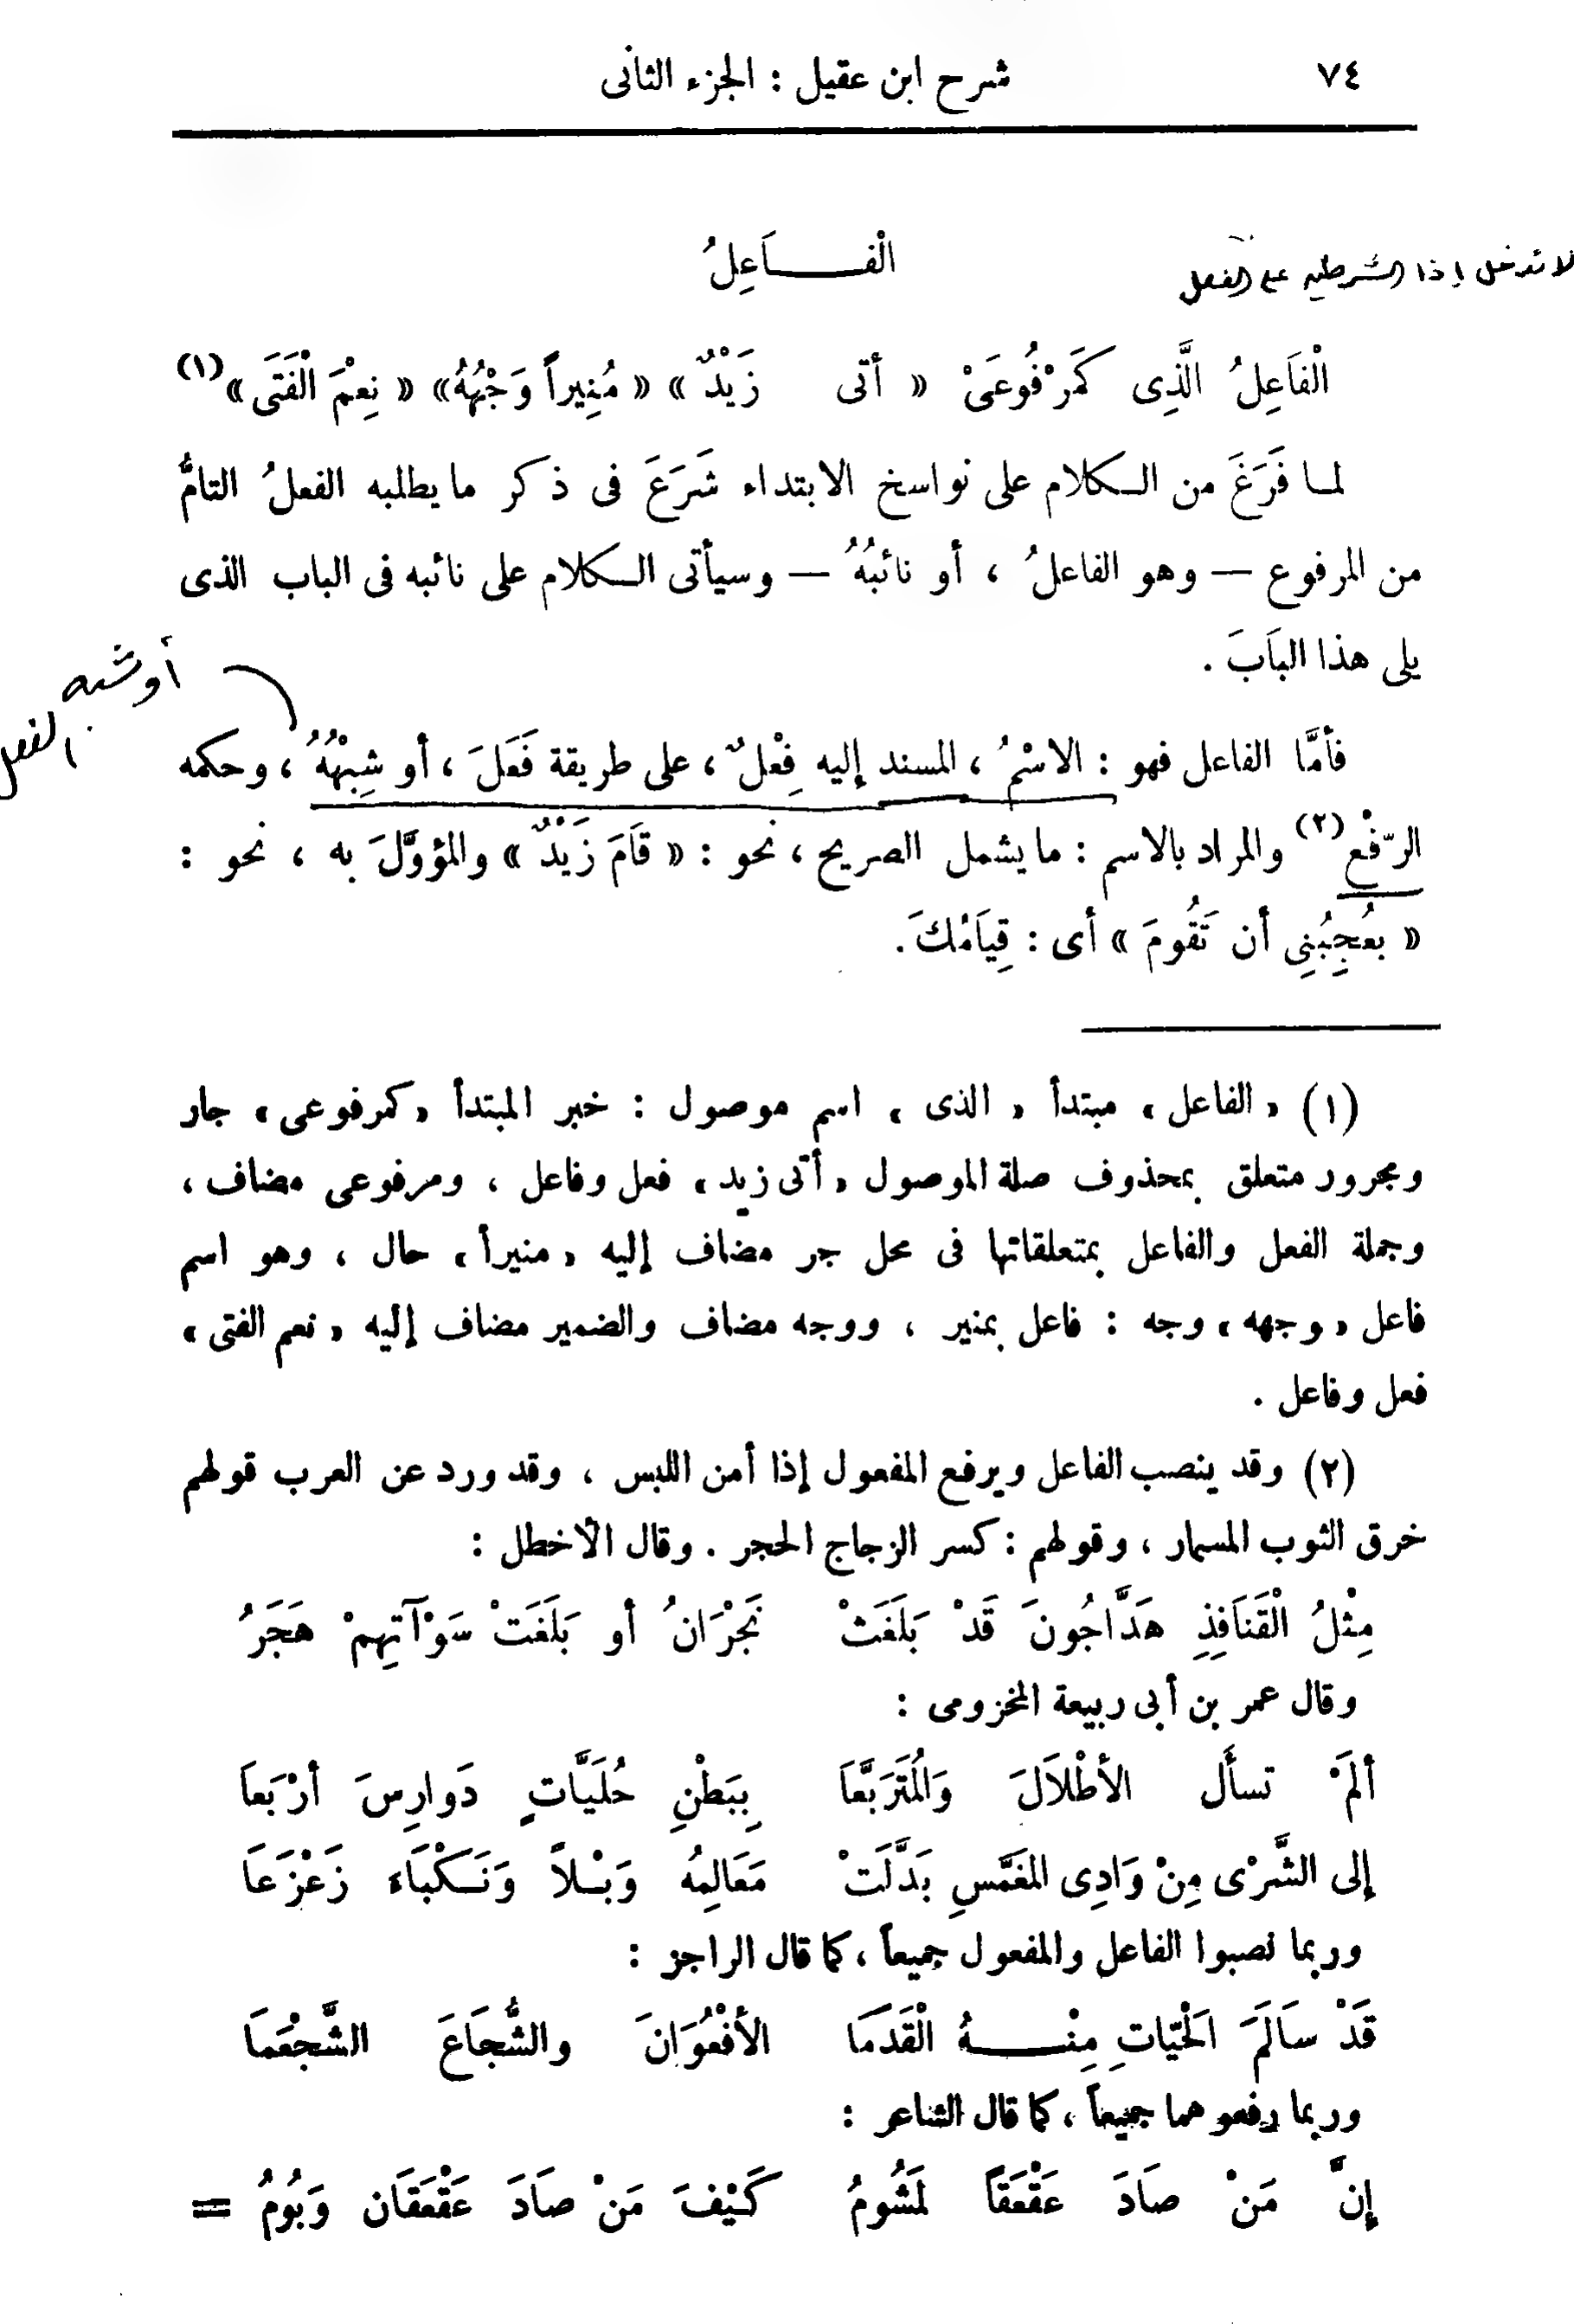 ٧٤ شرح ابن عقيل : الجزء الثانى
الْفَـــاَعِلُ
لا تدخل إذا الشرطيه على الفعل
الْفاَعِلُ الَّذِى كَمَرْفُوعَىْ « أتى زَيْدٌ » « مُنِيراً وَجْهُهُ» « نِعْمَ الْفَتَى» (١)
لمـا فَرَغَ من الـكلام على نواسخ الابتداء شَرَعَ فى ذكر ما يطلبه الفعلُ التامُّ
من المرفوع — وهو الفاعلُ ، أو نائبُهُ — وسيأتى الـكلام على نائبه فى الباب الذى
يلى هذا البَابَ .
أو شبه
الفعل
فأمَّا الفاعل فهو : الاسْمُ ، المسند إليه فِعْلٌ ، على طريقة فَعَلَ ، أو شِبْهُهُ ، وحكمه
الرّفْع (٢) والمراد بالاسم : ما يشمل الصريح ، نحو : « قَامَ زَيْدٌ » والمؤوَّلَ به ، نحو :
« يعُجِبُنِى أن تَقُومَ » أى : قِيَامُكَ .
(١) « الفاعل » مبتدأ « الذى » اسم موصول : خبر المبتدأ « كمرفوعى » جار
ومجرور متعلق بمحذوف صلة الموصول « أتى زيد » فعل وفاعل ، ومرفوعى مضاف ،
وجملة الفعل والفاعل بمتعلقاتها فى محل جر مضاف إليه « منيرأ » حال ، وهو اسم
فاعل « وجهه » وجه : فاعل بمنير ، ووجه مضاف والضمير مضاف إليه « نعم الفتى »
فعل وفاعل .
(٢) وقد ينصب الفاعل ويرفع المفعول إذا أمن اللبس ، وقد ورد عن العرب قولهم
خرق الثوب المسمار ، وقولهم : كسر الزجاج الحجر . وقال الأخطل :
مِثْلُ الْقَنَافِذِ هَدَّاجُونَ قَدْ بَلَغَتْ نَجْرَانُ أو بَلَغَتْ سَوْآتِهِمْ هَجَرُ
وقال عمر بن أبى ربيعة المخزومى :
ألَمْ تسأَل الأطْلاَلَ وَالْمُتَرَبَّعَا بِبَطْنِ حُلَيَّاتٍ دَوارِسَ أرْبَعاَ
إلى الشَّرْى مِنْ وَادِى المغَمَّسِ بَدَّلَتْ مَعَالِمُه وَبْـلاً وَنَـكْبَاءَ زَعْزَعَا
وربما نصبوا الفاعل والمفعول جميعاً ، كما قال الراجز :
قَدْ سَالَمَ الْحَيّاتِ مِنْـــهُ الْقَدَمَا الأفْعُوَانَ والشُّجَاعَ الشَّجْعَمَا
وربما رفعوهما جميعاً ، كما قال الشاعر :
إنَّ مَنْ صَادَ عَقْعَقاً لَمَشُومُ كَيْفَ مَنْ صَادَ عَقْعَقَان وَبُومُ =